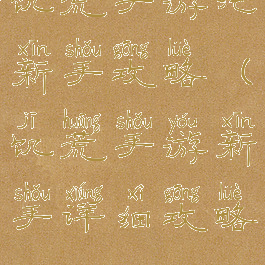 xīn shǒu gōng lüè
新手攻略（
jī huāng shǒu yóu xīn
饥荒手游新
shǒu xiáng xì gōng lüè
手详细攻略